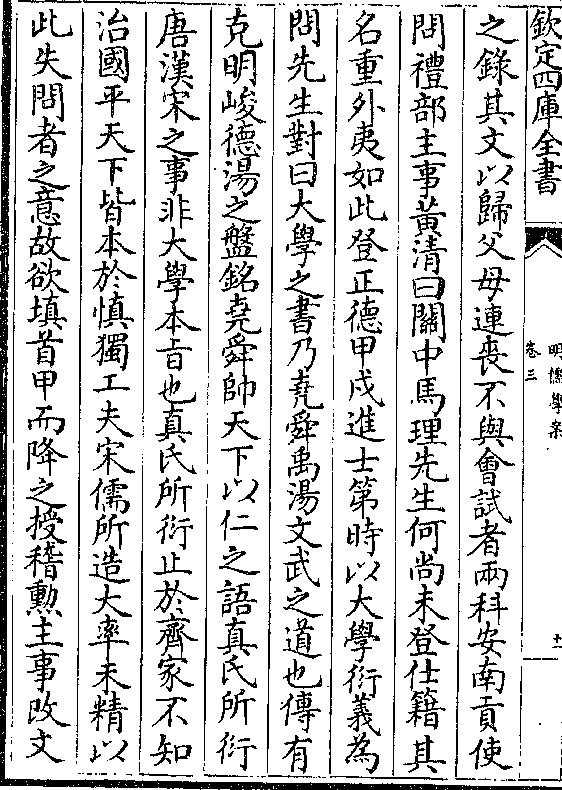 欽定四庫全書
明儒學案
卷三
十一
之錄其文以歸父母連喪不與會試者兩科安南貢使
問禮部主事黃清曰關中馬理先生何尚未登仕籍其
名重外夷如此登正德甲戌進士第時以大學衍義為
問先生對曰大學之書乃堯舜禹湯文武之道也傳有
克明峻德湯之盤銘堯舜帥天下以仁之語真氏所衍
唐漢宋之事非大學本旨也真氏所衍止於齊家不知
治國平天下皆本於慎獨工夫宋儒所造大率未精以
此失問者之意故欲填首甲而降之授稽勲主事改文